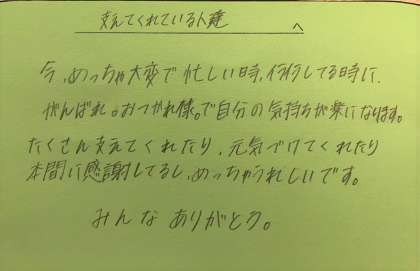 支えてくれている人達 へ
今、めっちゃ大変で忙しい時、行何してる時に、
がんばれ。おつかれ様。で自分の気持ちが楽になります。
たくさん支えてくれたり、元気づけてくれたり
本間に感謝してるし、めっちゃうれしいです。
みんなありがとう。